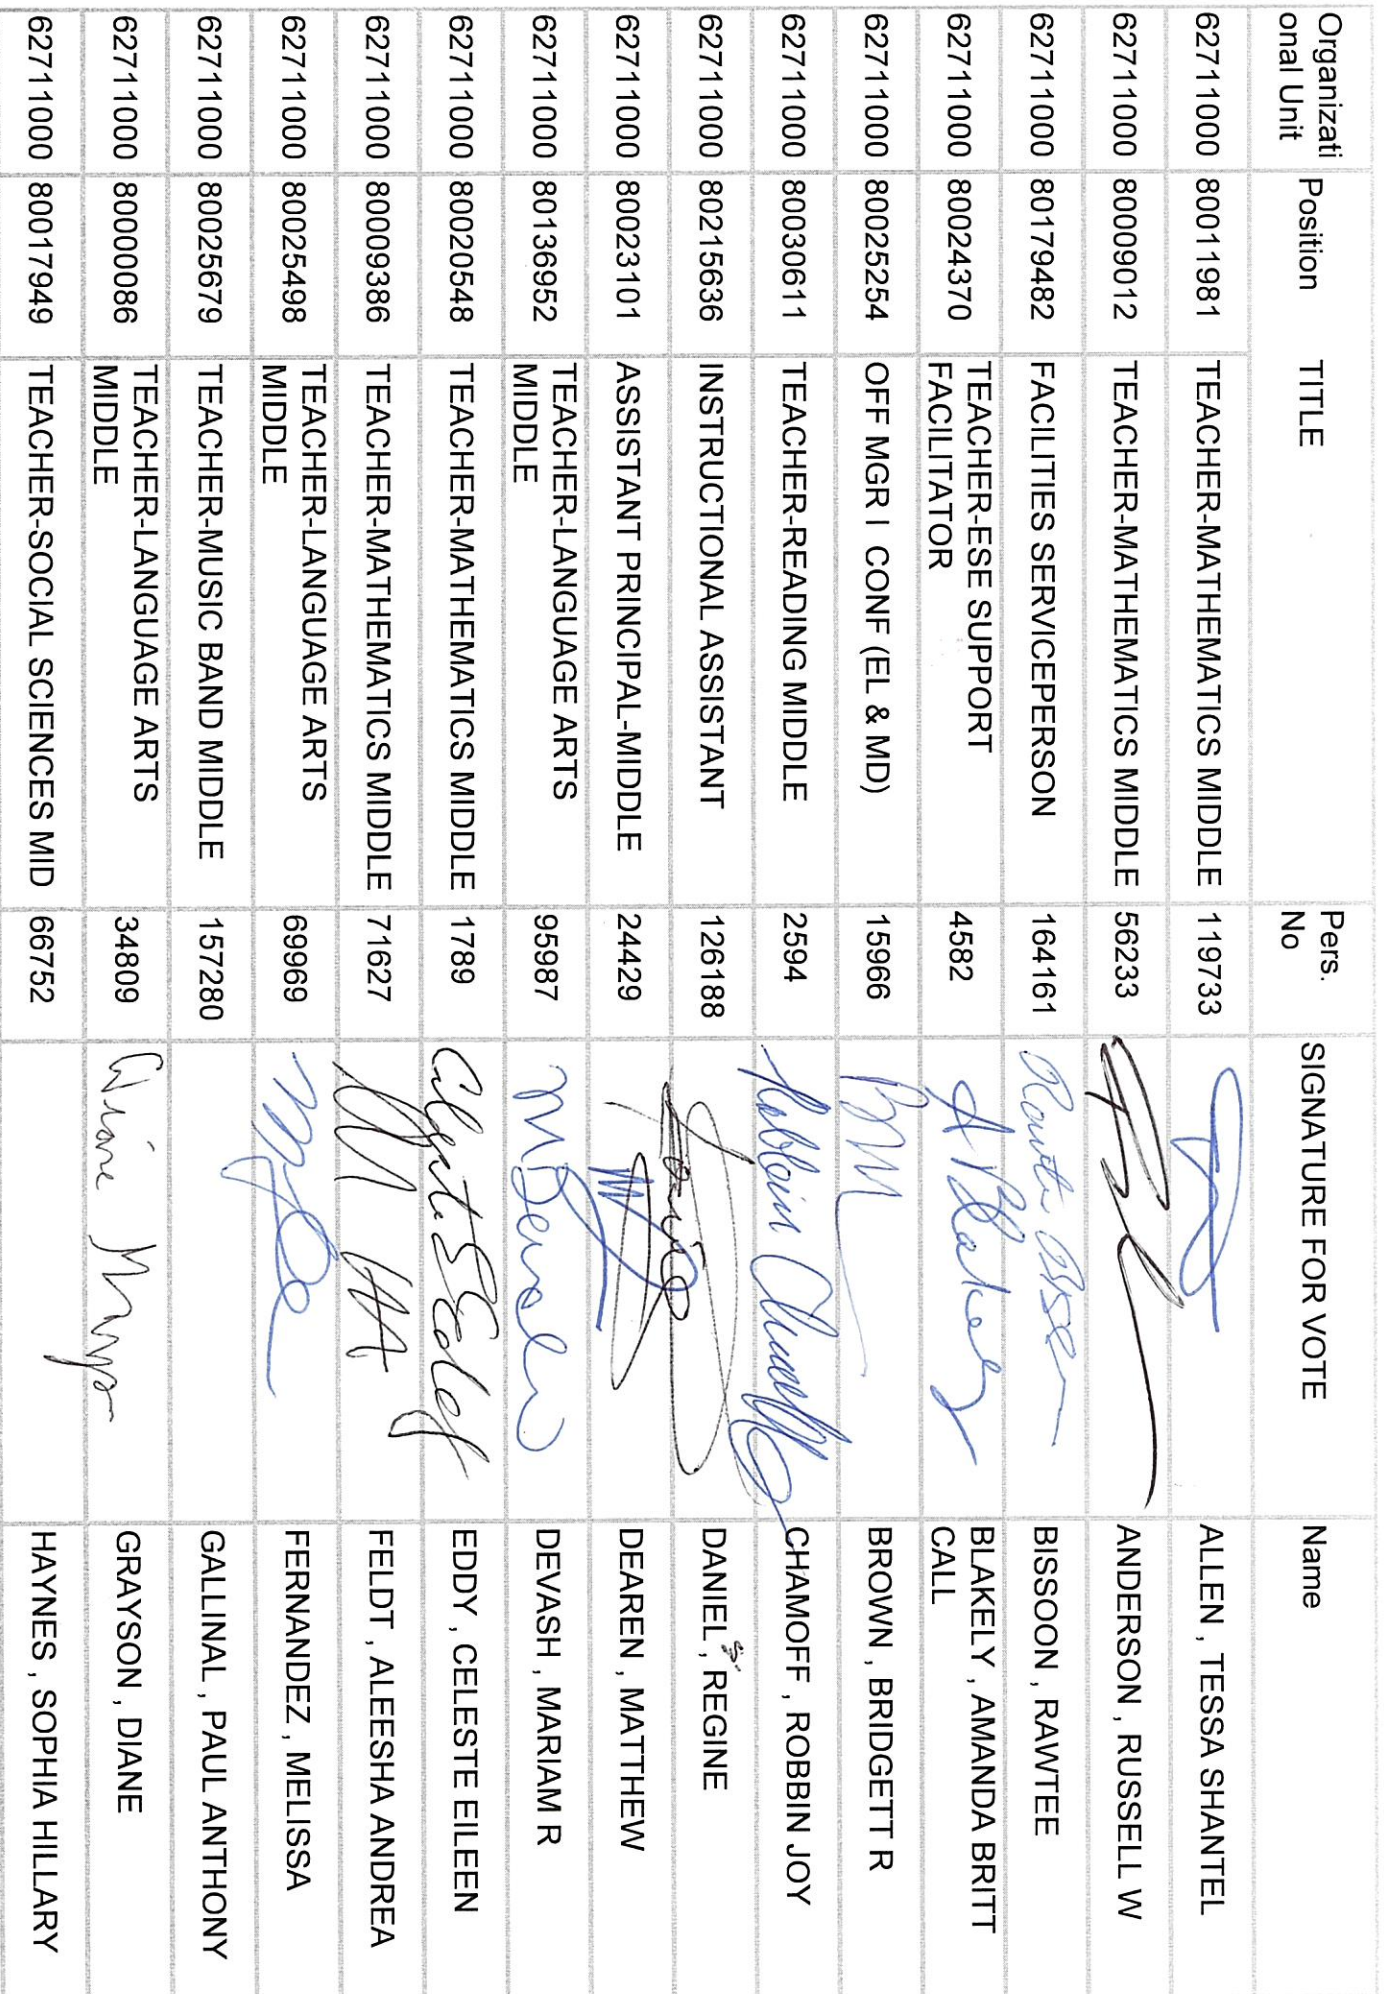 Organizati
onal Unit
Position
TITLE
Pers.
No
SIGNATURE FOR VOTE
Name
62711000 80011981 TEACHER-MATHEMATICS MIDDLE 119733 ALLEN , TESSA SHANTEL
62711000 80009012 TEACHER-MATHEMATICS MIDDLE 56233 ANDERSON , RUSSELL W
62711000 80179482 FACILITIES SERVICEPERSON 164161 BISSOON , RAWTEE
62711000 80024370 TEACHER-ESE SUPPORT
FACILITATOR
4582 A Blakely BLAKELY , AMANDA BRITT
CALL
62711000 80025254 OFF MGR I CONF (EL & MD) 15966 BM BROWN , BRIDGETT R
62711000 80030611 TEACHER-READING MIDDLE 2594 CHAMOFF , ROBBIN JOY
62711000 80215636 INSTRUCTIONAL ASSISTANT 126188 DANIEL , REGINE
62711000 80023101 ASSISTANT PRINCIPAL-MIDDLE 24429 DEAREN , MATTHEW
62711000 80136952 TEACHER-LANGUAGE ARTS
MIDDLE
95987 M Devash DEVASH , MARIAM R
62711000 80020548 TEACHER-MATHEMATICS MIDDLE 1789 EDDY , CELESTE EILEEN
62711000 80009386 TEACHER-MATHEMATICS MIDDLE 71627 FELDT , ALEESHA ANDREA
62711000 80025498 TEACHER-LANGUAGE ARTS
MIDDLE
69969 FERNANDEZ , MELISSA
62711000 80025679 TEACHER-MUSIC BAND MIDDLE 157280 GALLINAL , PAUL ANTHONY
62711000 80000086 TEACHER-LANGUAGE ARTS
MIDDLE
34809 Diane GRAYSON , DIANE
62711000 80017949 TEACHER-SOCIAL SCIENCES MID 66752 HAYNES , SOPHIA HILLARY